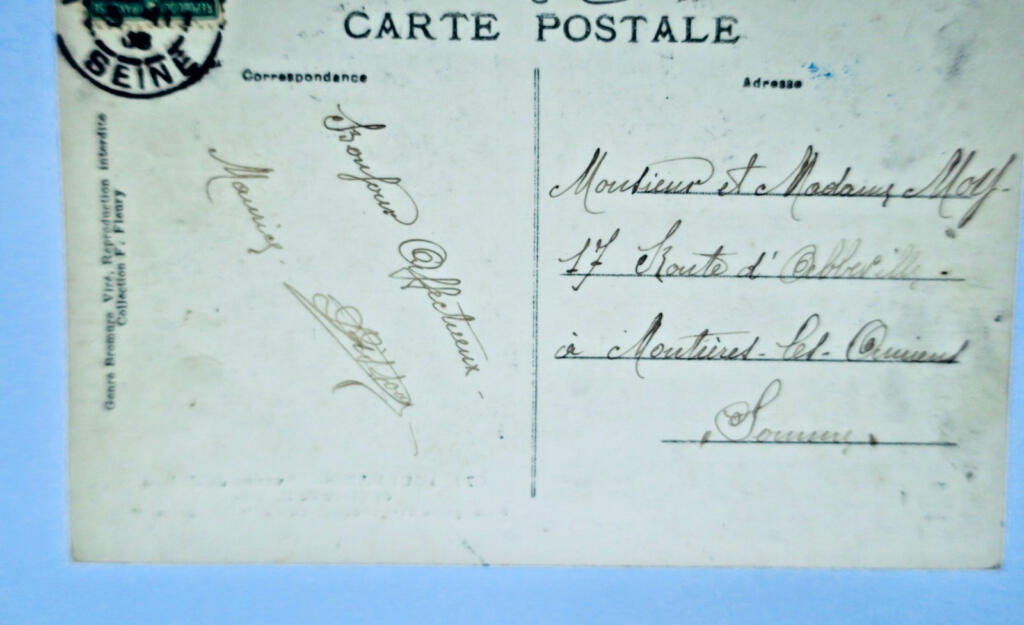 SEINE
CARTE POSTALE
Correspondance
Adresse
Genre Bromure, Vire, Reproduction interdite
Collection F. Fleury
Bonjour Affectueux -
Maurice
Monsieur et Madame
17 Route d' Abbeville -
à Montières - les - Amiens
Somme